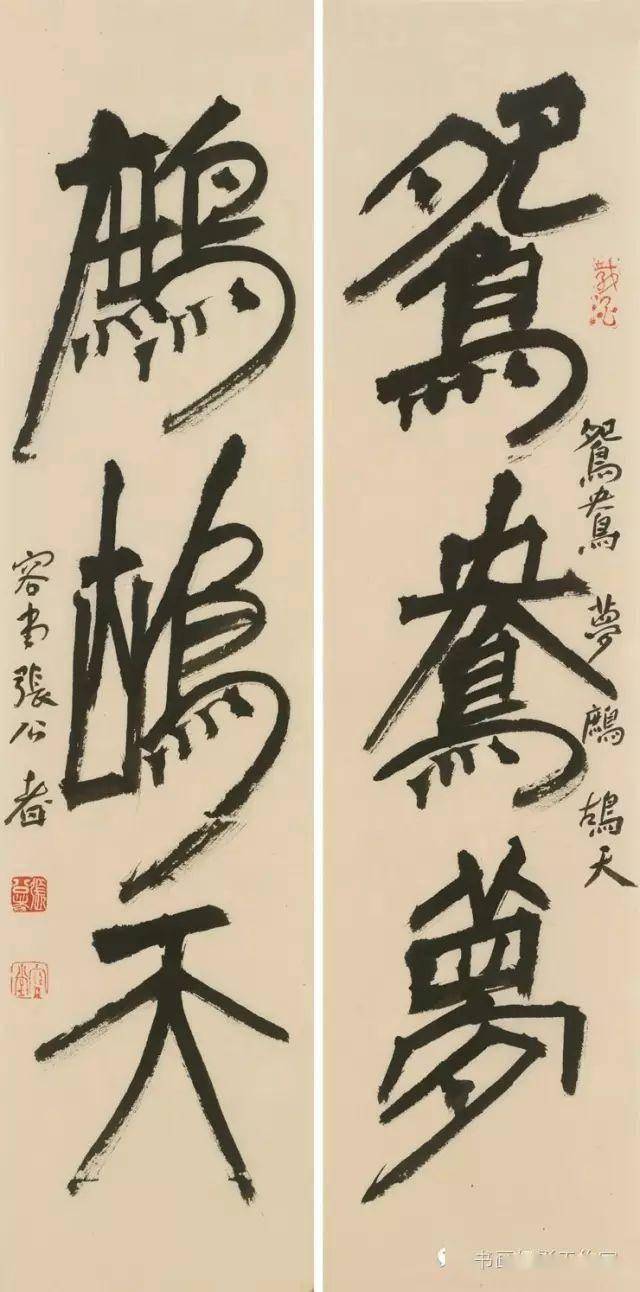 鴛鴦夢
鴛鴦夢鷓鴣天
鷓鴣天
容堂張公者